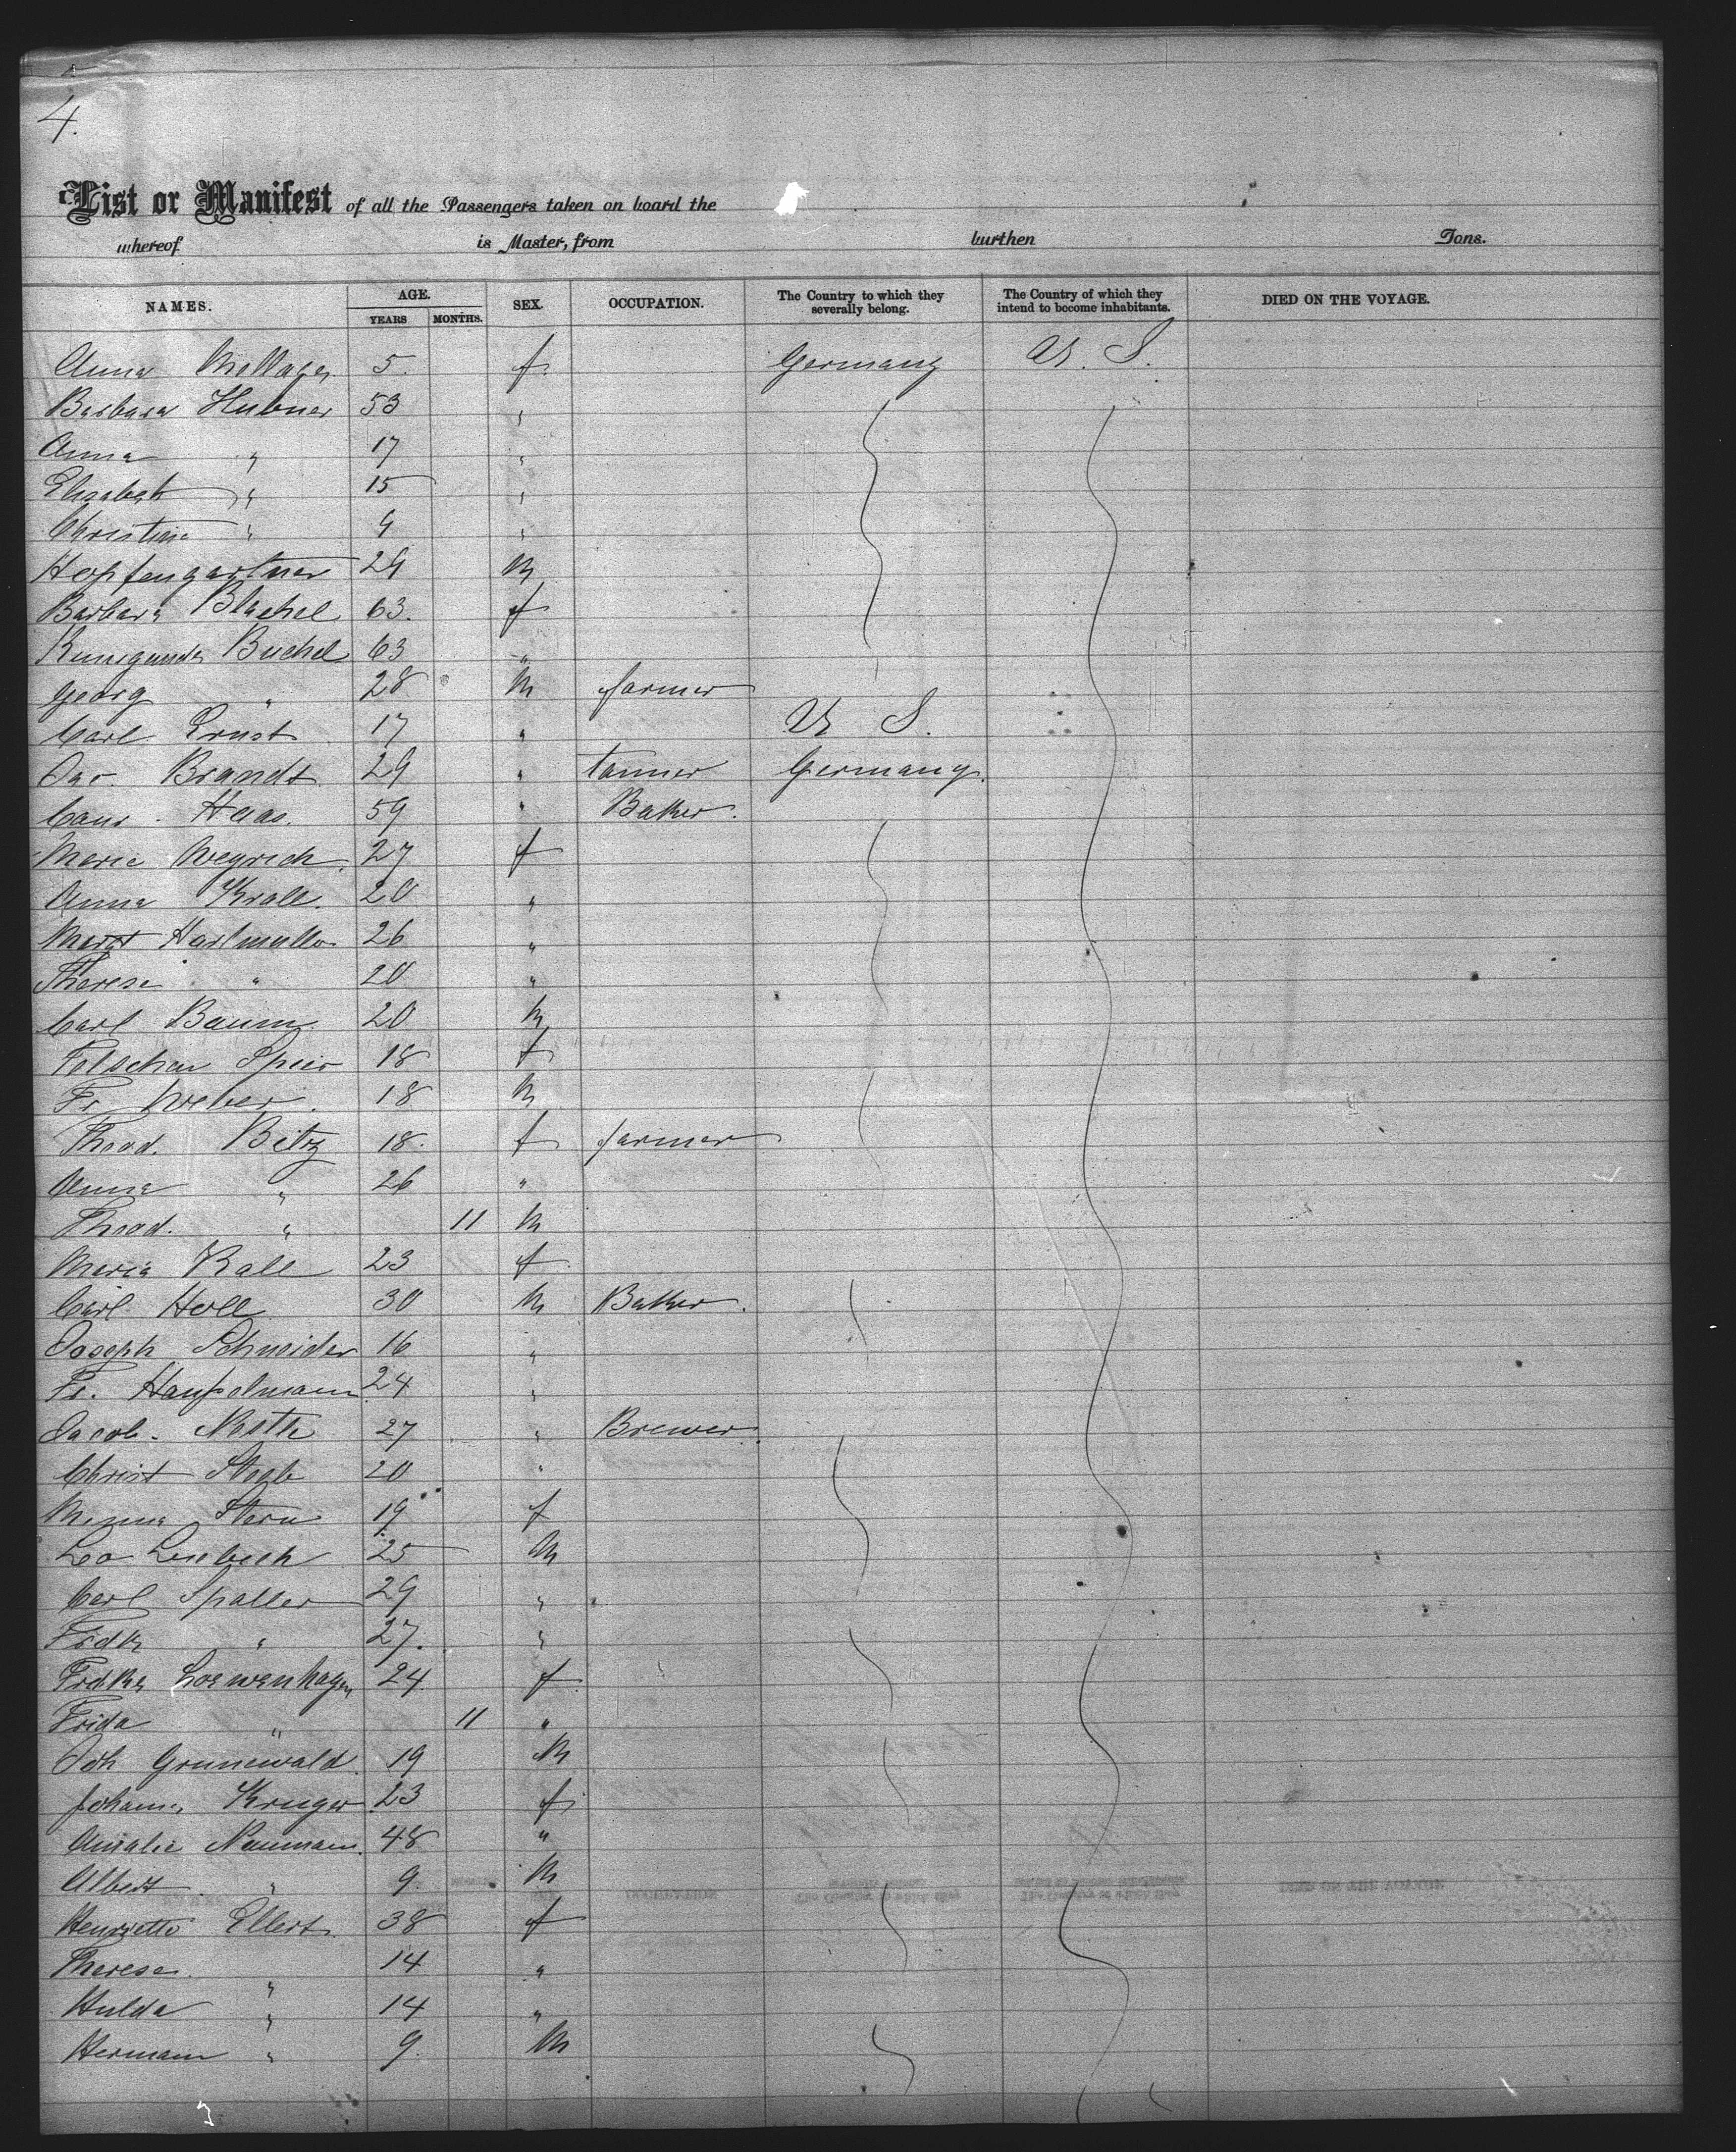 4.
List or Manifest of all the Passengers taken on board the
whereof is Master, from burthen Tons.
NAMES. AGE. YEARS MONTHS. SEX. OCCUPATION. The Country to which they severally belong. The Country of which they intend to become inhabitants. DIED ON THE VOYAGE.
Anna 5 f. Germany U. S.
Barbara Hubner 53 "
Anna " 17 "
Elisabeth " 15 "
Christine " 9 "
Hopfengartner 29 M
Barbara Blachel 63. f
Kunegunda Buchel 63 "
Georg " 28 M farmer
Carl Ernst 17 " U S.
Jac. Brandt 29 " tanner Germany.
Haas. 59 " Baker.
Marie Weyrich 27 f
Anna Krall. 20 "
Margt 26 "
Therese " 20 "
Carl Baum 20 M
Speier 18 f
Fr Weber. 18 M
Theod. Bitz 18. f farmer
Anna " 26 "
Theod. " 11 M
Maria Rall 23 f
Carl Holl 30 M Baker.
Joseph Schneider 16 "
Fr. 24 "
Jacob. Noth 27 " Brewer.
Christ 20 "
Minna Stern 19 f
Leo 25 M
Carl Spaller 29 "
Fridk " 27. "
Fridke Loewenhagen 24. f
Frida " 11 "
Joh Grunewald. 19 M
Johanna Kruger 23 f
Amalie Neumann. 48 "
Albert " 9. M
Henriette Ellert. 38 f
Therese. " 14 "
Hulda " 14 "
Hermann " 9. M